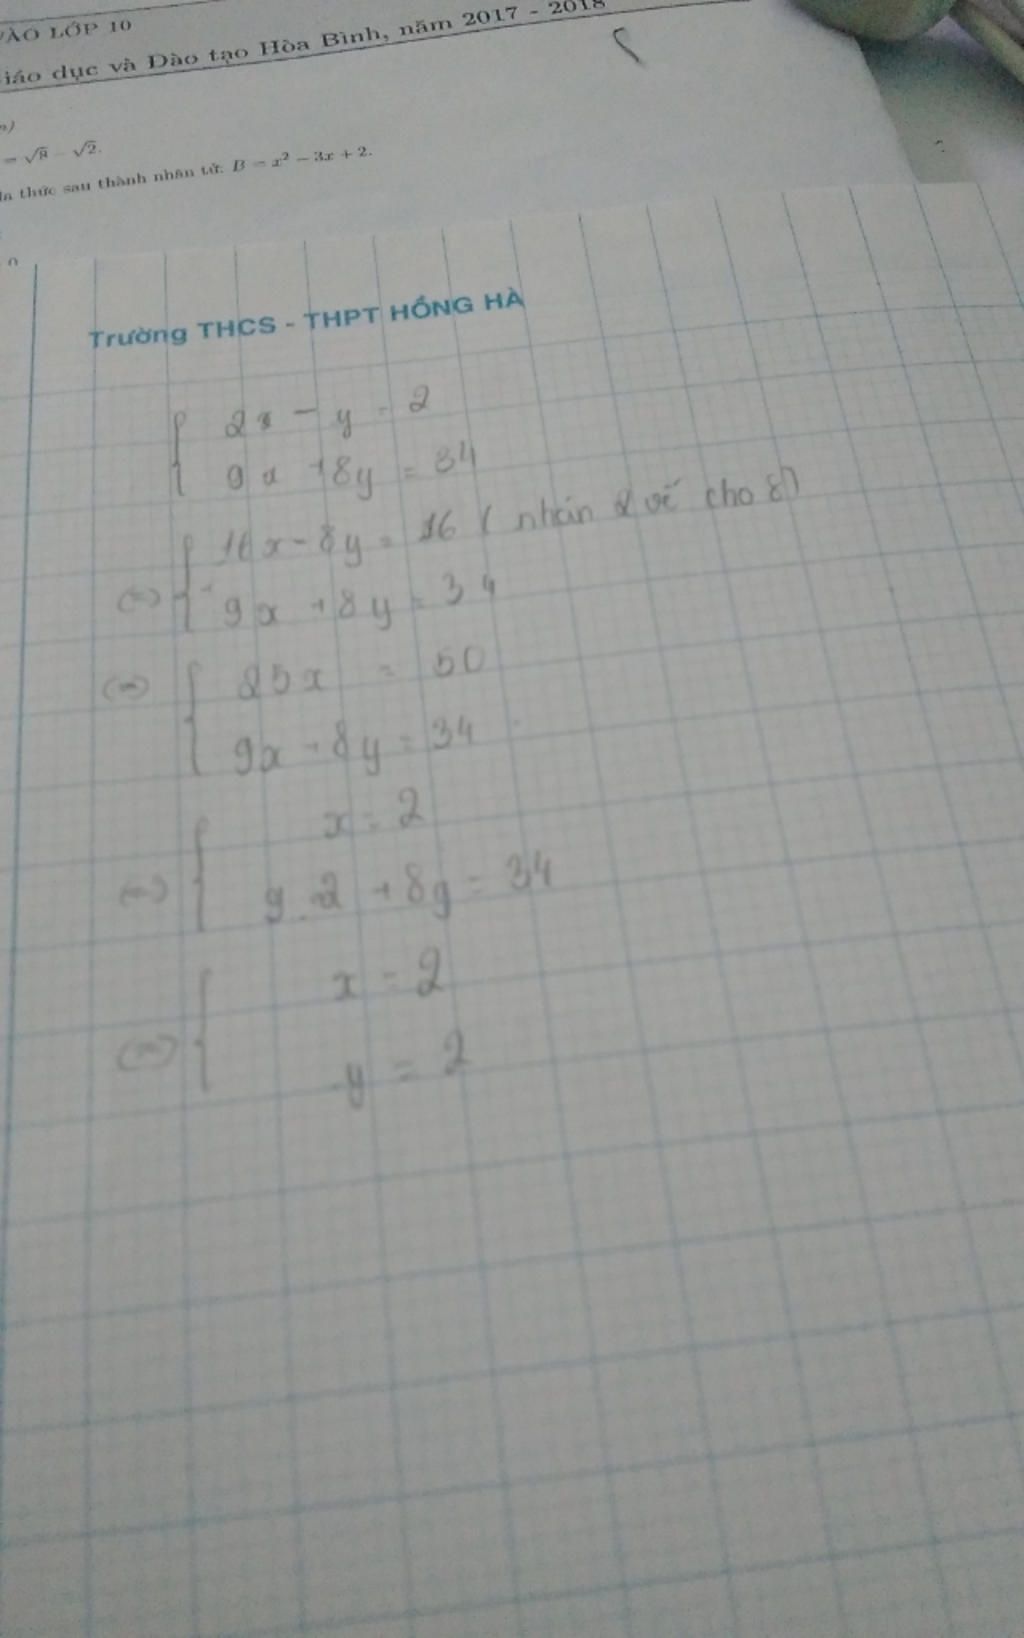 VÀO LỚP 10
Giáo dục và Đào tạo Hòa Bình, năm 2017 - 2018
= √8 - √2.
thức sau thành nhân tử: B = x² - 3x + 2.
Trường THCS - THPT HỒNG HÀ
{ 2x - y = 2
9x + 8y = 34
(=) { 16x - 8y = 16 ( nhân 2 vế cho 8)
9x + 8y = 34
(=) { 25x = 50
9x + 8y = 34
(=) { x = 2
9.2 + 8y = 34
(=) { x = 2
y = 2